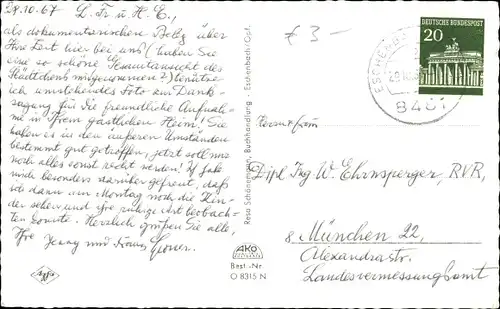 29.10.67 L. Fr. u. H. E.,
als dokumentarischen Beleg über
Ihre Zeit hier bei uns (haben Sie
eine so schöne Gesamtansicht des
Städtchens mitgenommen?) benütze
ich umstehendes Foto zur Dank-
sagung für die freundliche Aufnah-
me in Ihrem gastlichen Heim! Sie
haben es in den äußeren Umständen
bestimmt gut getroffen, jetzt soll nur
noch alles sonst recht werden! Ich habe
mich besonders darüber gefreut, daß
ich dann am Montag noch die Kin-
der sehen und ihre Art beobach-
ten konnte. Herzlich grüßen Sie alle,
Ihre und
Agfa
AKO
Best.-Nr.
O 8315 N
Rosa Schöner, Buchhandlung, Eschenbach/Opf.
€ 3-
ESCHENBACH
29.10.
8481
DEUTSCHE BUNDESPOST
20
Herrn/Frau
Dipl. Ing W. Ehrnsperger, RVR,
8 München 22,
Alexandrastr.
Landesvermessungsamt